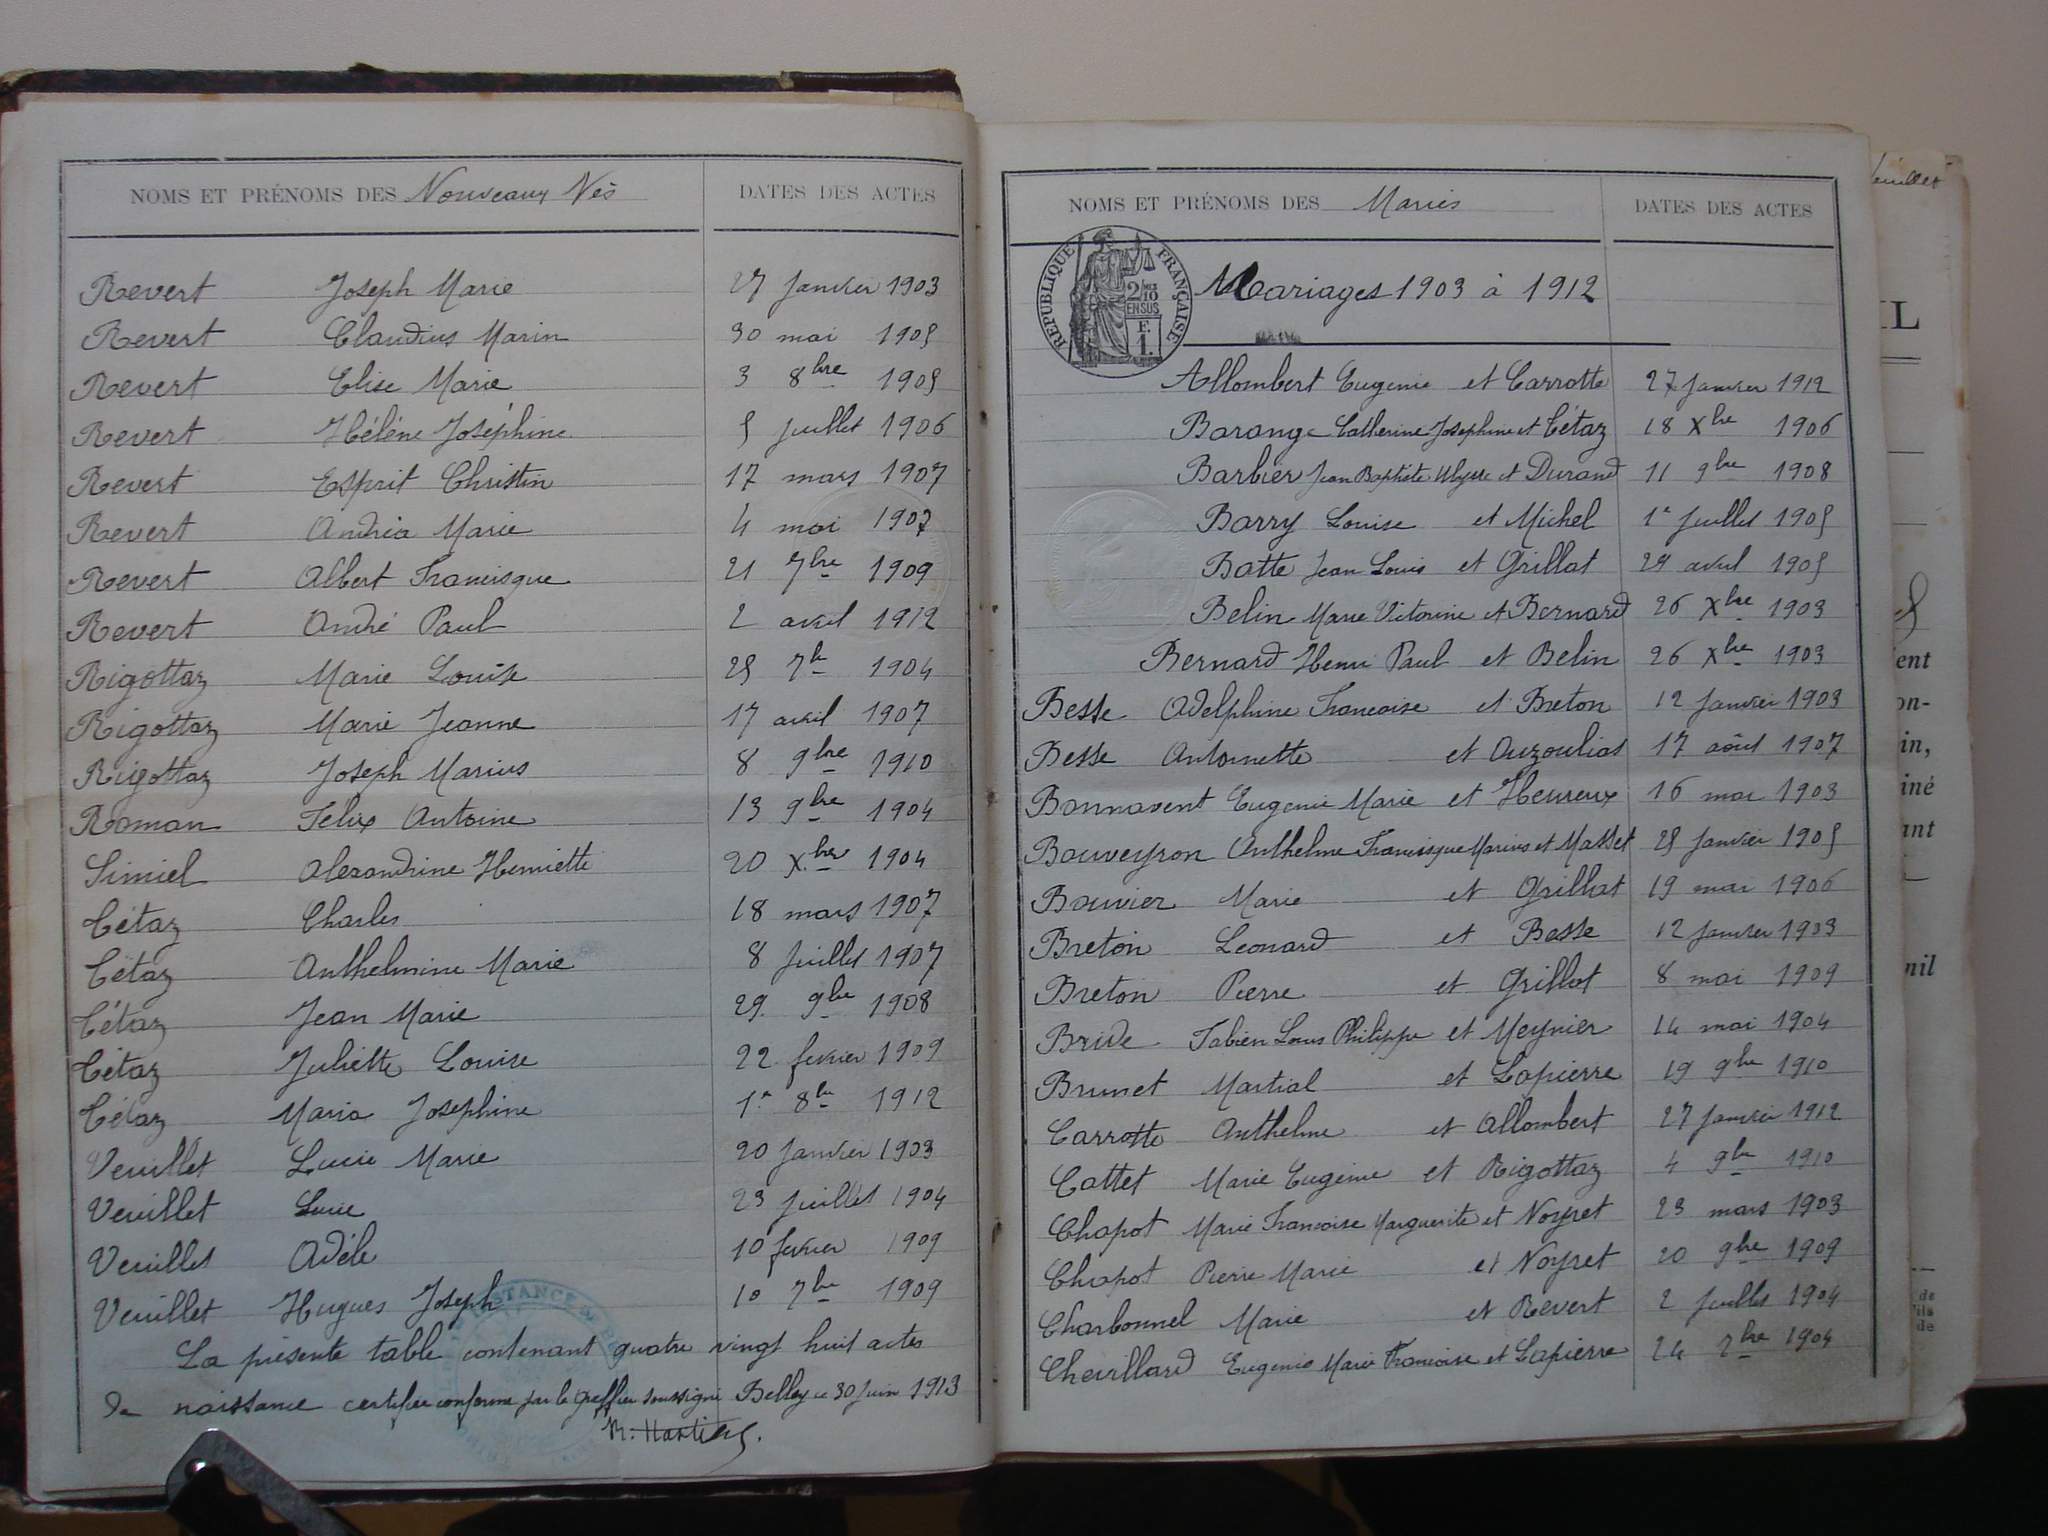 NOMS ET PRÉNOMS DES Nouveaux Nés DATES DES ACTES
Revert Joseph Marie 27 janvier 1903
Revert Claudius Marin 30 mai 1905
Revert Elise Marie 3 8bre 1905
Revert Hélène Joséphine 5 juillet 1906
Revert Esprit Christin 17 mars 1907
Revert Andréa Marie 4 mai 1907
Revert Albert Francisque 21 7bre 1909
Revert André Paul 2 avril 1912
Rigottaz Marie Louise 25 7b 1904
Rigottaz Marie Jeanne 17 avril 1907
Rigottaz Joseph Marius 8 9bre 1910
Roman Felix Antoine 13 9bre 1904
Simiel Alexandrine Henriette 20 Xbre 1904
Tétaz Charles 18 mars 1907
Tétaz Anthelmine Marie 8 juillet 1907
Tétaz Jean Marie 29 9bre 1908
Tétaz Juliette Louise 22 fevrier 1909
Tétaz Maria Josephine 1er 8bre 1912
Veuillet Lucie Marie 20 janvier 1903
Veuillet Lucie 23 juillet 1904
Veuillet Adèle 10 fevrier 1909
Veuillet Hugues Joseph 10 7bre 1909
La présente table contenant quatre vingt huit actes
de naissance certifiée conforme par le Greffier soussigné Belley ce 30 juin 1913
NOMS ET PRÉNOMS DES Mariés DATES DES ACTES
RÉPUBLIQUE FRANÇAISE
2/10
EN SUS
F.
1.
Mariages 1903 à 1912
Allombert Eugenie et Carrotte 27 janvier 1912
Barange Catherine Josephine et Tétaz 18 Xbre 1906
Barbier Jean Baptiste Ulysse et Durand 11 9bre 1908
Barry Louise et Michel 1er juillet 1905
Batte Jean Louis et Grillat 29 avril 1905
Belin Marie Victorine et Bernard 26 Xbre 1903
Bernard Henri Paul et Belin 26 Xbre 1903
Besse Adelphine Francoise et Breton 12 janvier 1903
Besse Antoinette et Auzoulias 17 août 1907
Bonnavent Eugenie Marie et Heureux 16 mai 1903
Bouveyron Anthelme Francisque Marius et Masset 25 janvier 1905
Bouvier Marie et Grillat 19 mai 1906
Breton Leonard et Besse 12 janvier 1903
Breton Pierre et Grillot 8 mai 1909
Bride Fabien Louis Philippe et Meynier 14 mai 1904
Brunet Martial et Lapierre 19 9bre 1910
Carrotte Anthelme et Allombert 27 janvier 1912
Cattet Marie Eugenie et Rigottaz 4 9bre 1910
Chapot Marie Francoise Marguerite et Noyret 23 mars 1903
Chapot Pierre Marie et Noyret 20 9bre 1909
Charbonnel Marie et Revert 2 juillet 1904
Chevillard Eugenie Marie Francoise et Lapierre 24 7bre 1904